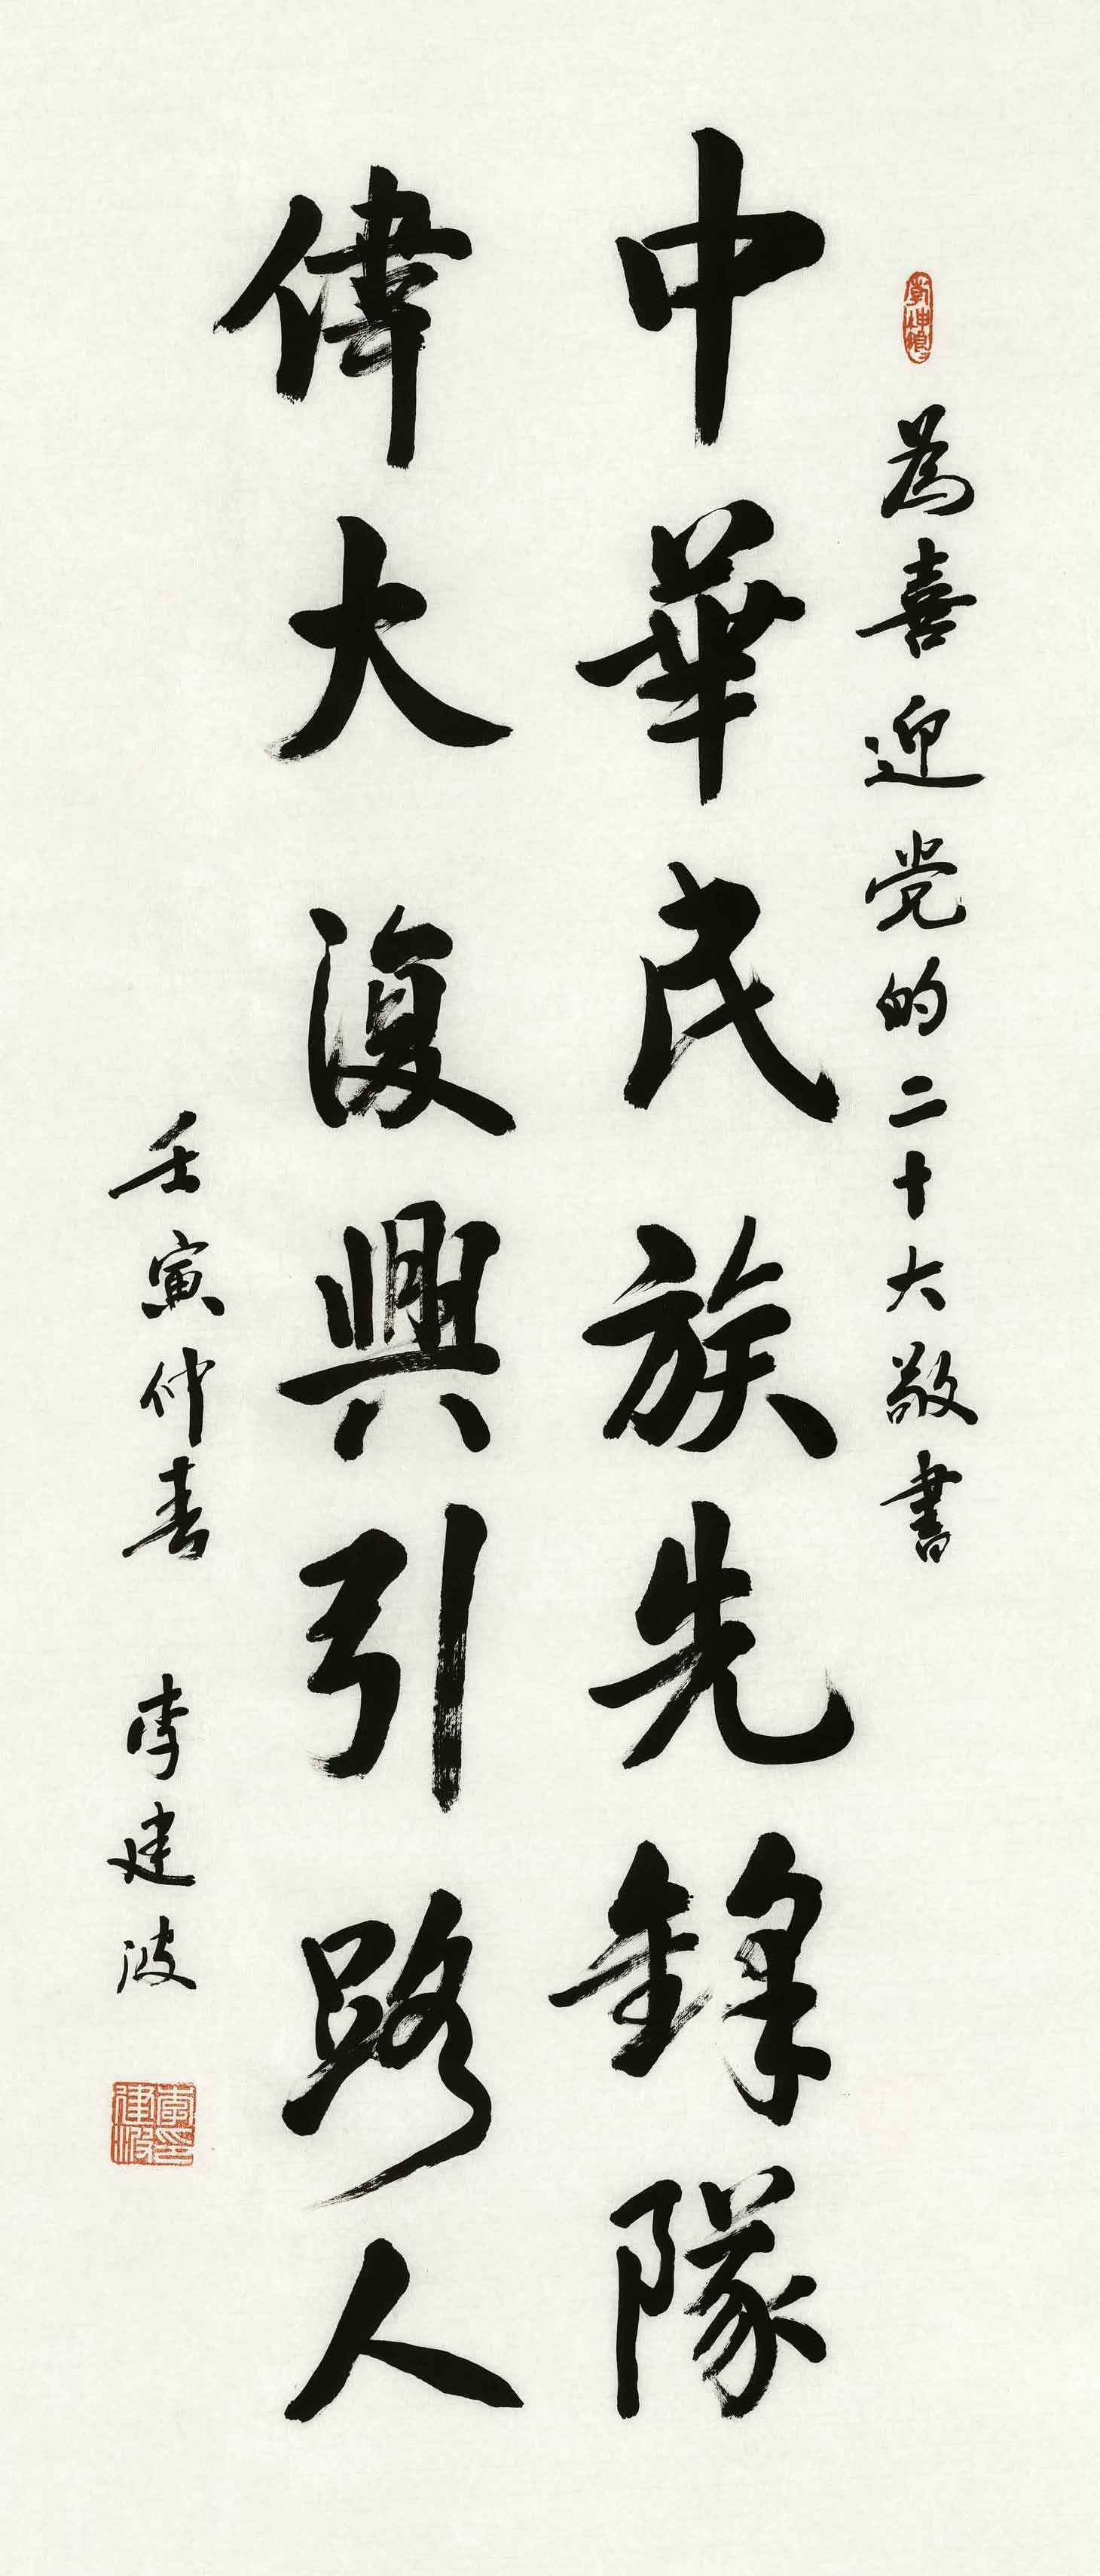 為喜迎党的二十大敬書
中華民族先鋒隊
偉大復興引路人
壬寅仲春 李建波
李建波印